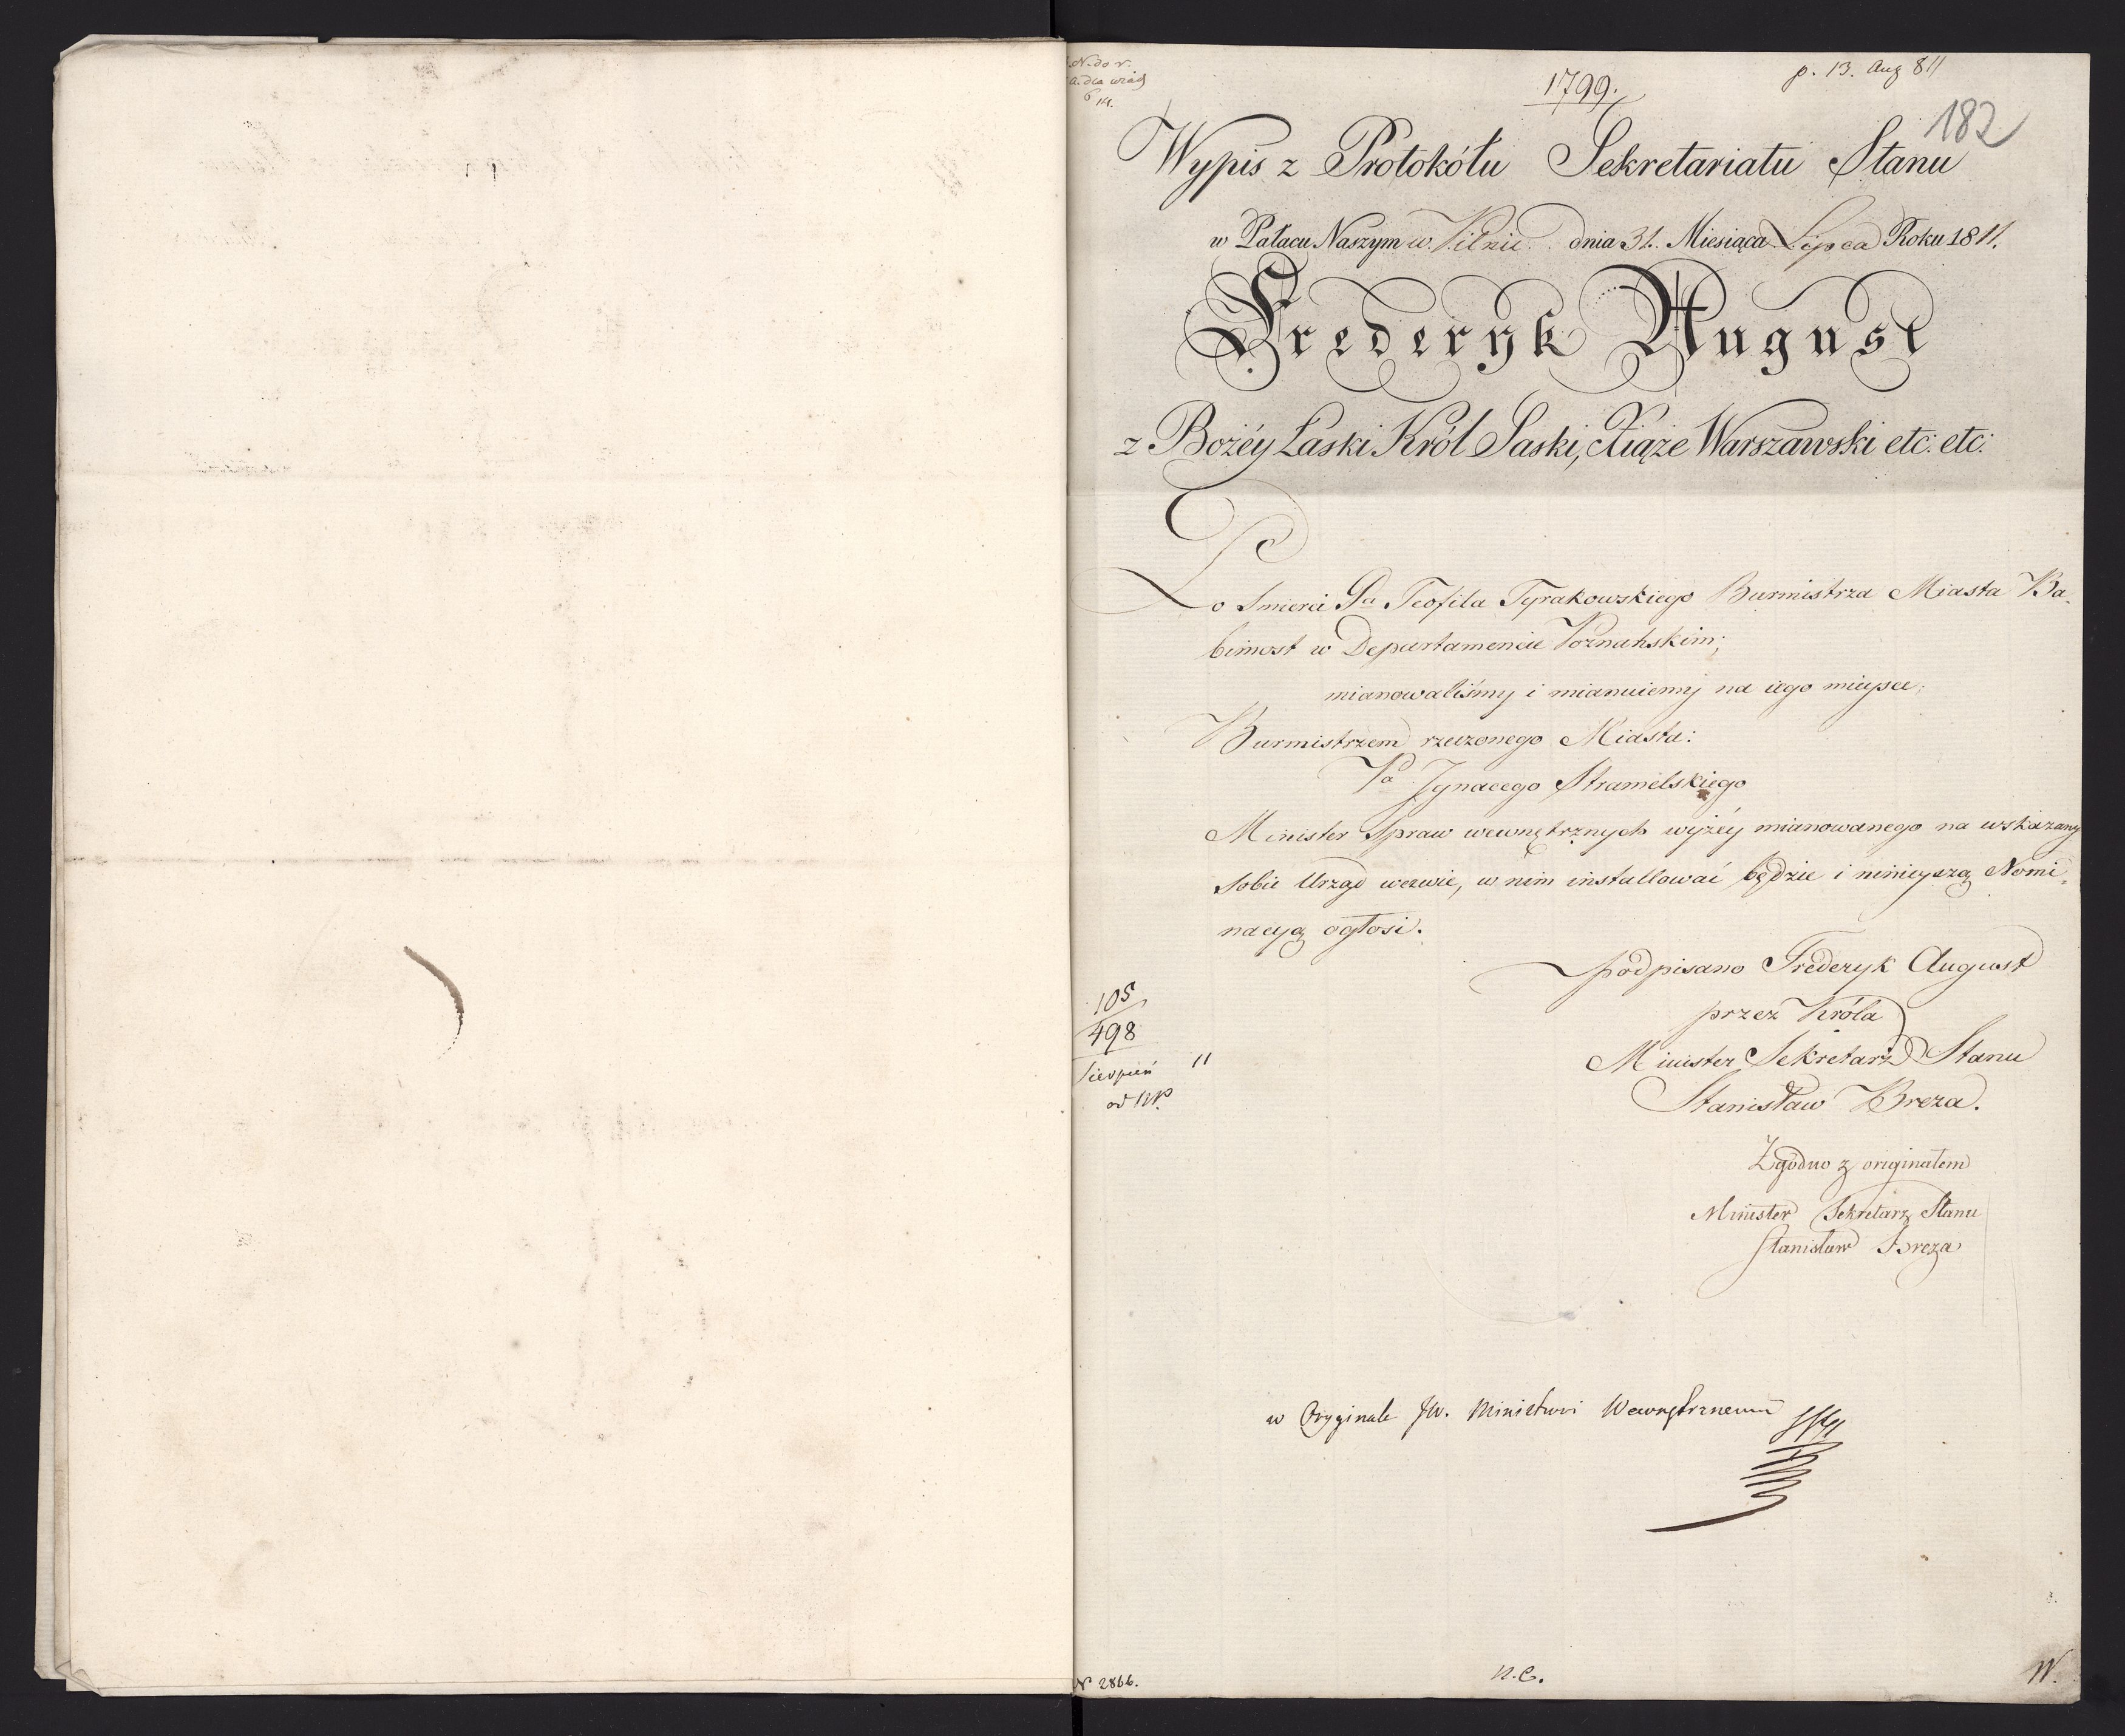 1799.
p. 13. Aug 811
182
Wypis z Protokółu Sekretariatu Stanu
w Pałacu Naszym w. Pilnic. dnia 31. Miesiąca Lipca Roku 1811.
Frederyk August
z Bożéy Łaski Król Saski, Xiąże Warszawski etc: etc:
Po Smierci Pa Teofila Tyrakowskiego Burmistrza Miasta Ba-
bimost w Departamencie Poznańskim;
mianowaliśmy i mianuiemy na iego mieysce,
Burmistrzem rzeczonego Miasta:
Pa Jgnacego Stramelskiego
Minister Spraw wewnętrznych wyżéy mianowanego na wskazany
sobie Urząd wezwie, w nim installować będzie i ninieyszą Nomi-
nacyą ogłosi.
podpisano Frederyk August
przez Króla
Minister Sekretarz Stanu
Stanisław Breza.
105
498
Sierpień 11
Zgodno z originałem
Minister Sekretarz Stanu
Stanisław Breza
w Oryginale JW. Ministrowi Wewnętrznemu
N 2866.
n.c.
W.